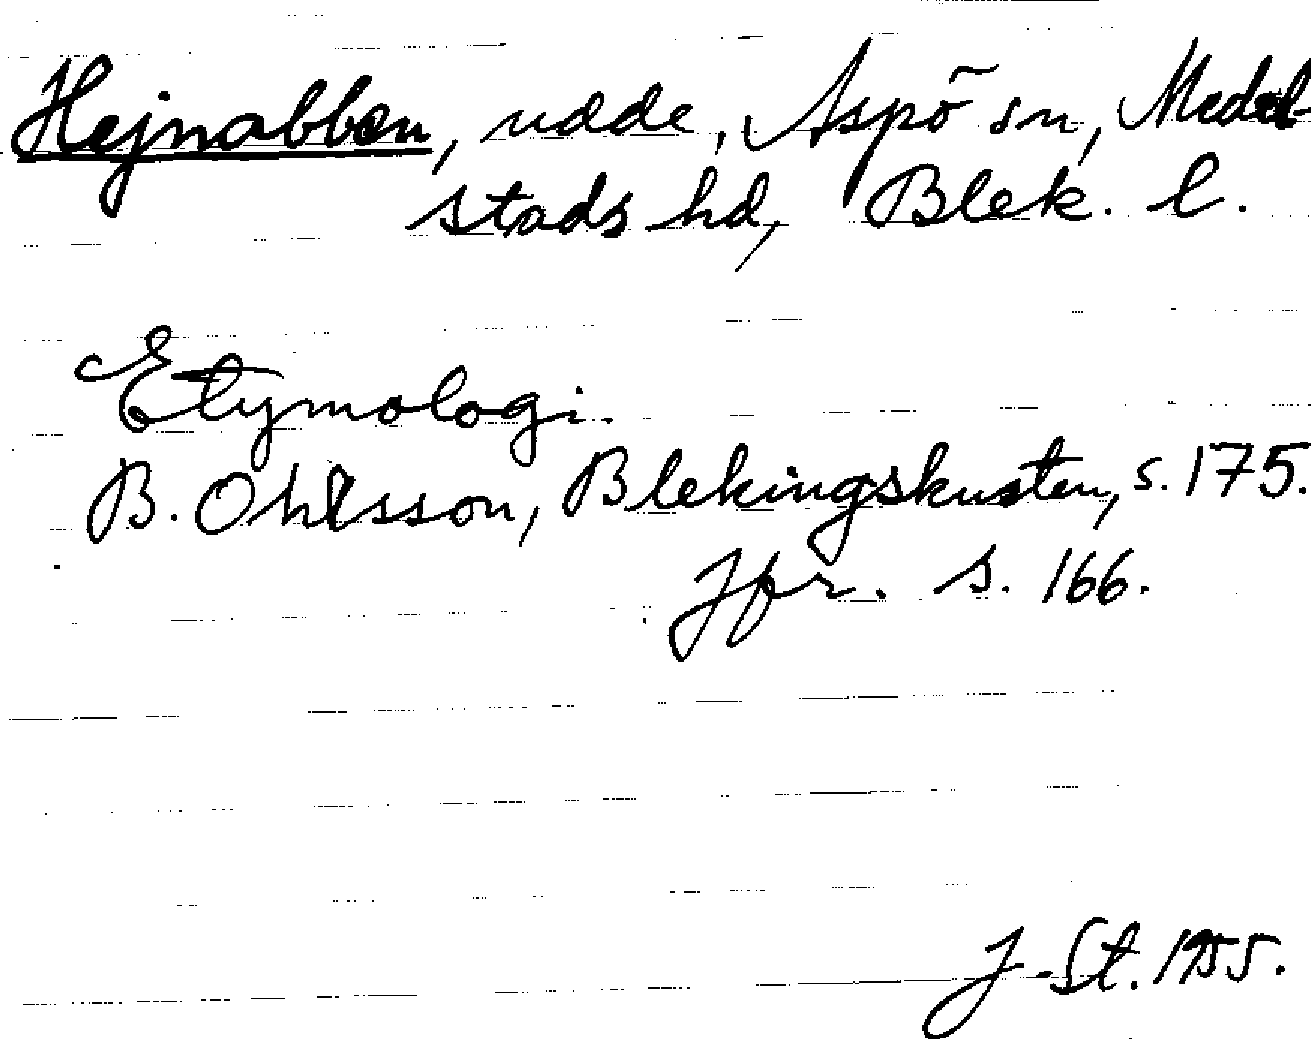 Hejnabben, udde, Aspö sn, Medel-
stads hd, Blek. l.
Etymologi.
B. Ohlsson, Blekingskusten, s. 175.
Jfr. s. 166.
J. St. 1955.